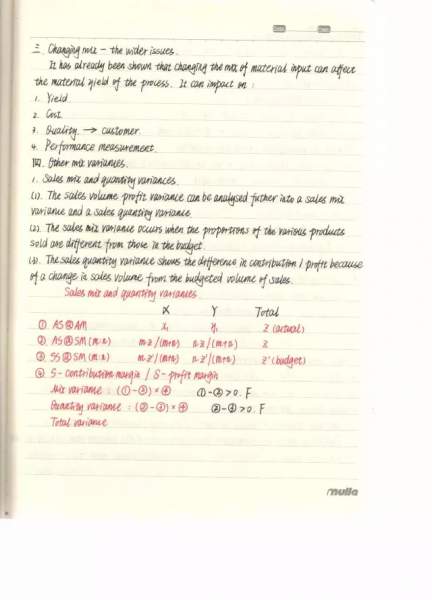 三. Changing mix - the wider issues.
It has already been shown that changing the mix of material input can affect
the material yield of the process. It can impact on :
1. Yield.
2. Cost.
3. Quality. → customer.
4. Performance measurement.
四. Other mix variances.
1. Sales mix and quantity variances.
(1). The sales volume profit variance can be analysed futher into a sales mix
variance and a sales quantity variance.
(2). The sales mix variance occurs when the proportions of the various products
sold are different from those in the budget.
(3). The sales quantity variance shows the difference in contribution / profit because
of a change in sales volume from the budgeted volume of sales.
Sales mix and quantity variances
X Y Total
① AS@AM x₁ y₁ z (actual)
② AS@SM (m:n) m·z/(m+n) n·z/(m+n) z
③ SS@SM (m:n) m·z'/(m+n) n·z'/(m+n) z' (budget)
④ S-contribution margin / S-profit margin
Mix variance : (①-②)×④ ①-②>0. F
Quantity variance : (②-③)×④ ②-③>0. F
Total variance
mulla